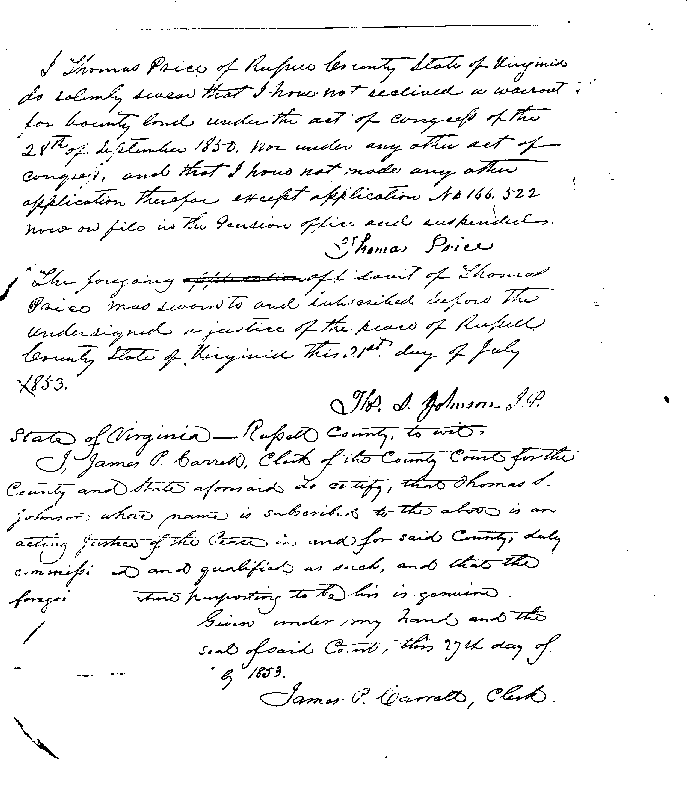 I Thomas Price of Russell County State of Virginia
do solemly swear that I have not received a warrant
for bounty land under the act of congress of the
28th of September 1850. Nor under any other act of
congress, and that I have not made any other
application therefor except application No 166.522
now on file in the Pension office and suspended.
Thomas Price
The foregoing application affidavit of Thomas
Price was sworn to and subscribed before the
undersigned a justice of the peace of Russell
County State of Virginia this 21st day of July
1853.
Ths. S. Johnson J.P.
State of Virginia — Russell County, to wit.
I, James P. Carrell, Clerk of the County Court for the
County and State aforesaid do certify, that Thomas S.
Johnson whose name is subscribed to the above is an
acting Justice of the Peace in and for said County, duly
commissi ed and qualified as such, and that the
foregoi ture purporting to be his is genuine.
Given under my hand and the
seal of said Court, this 27th day of
y 1853.
James P. Carrell, Clerk.